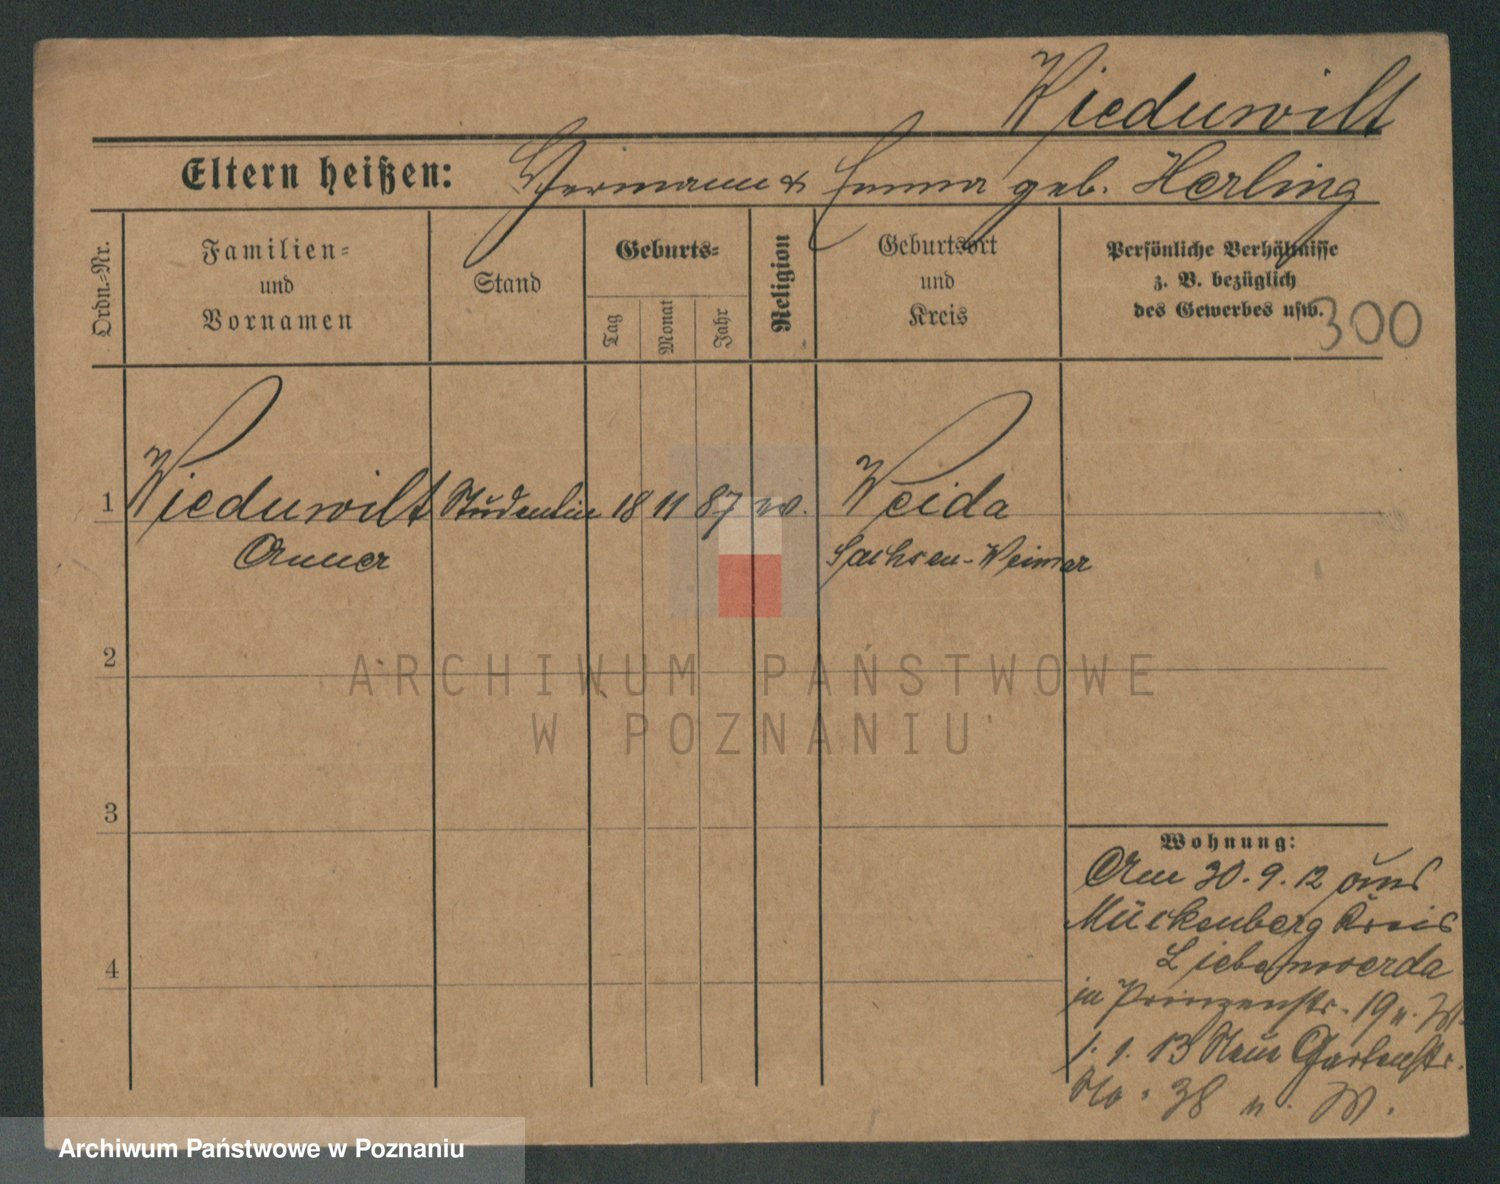 Wieduwilt
Eltern heißen: Hermann & Emma geb. Herling
Ordn.-Nr.
Familien-
und
Vornamen
Stand
Geburts-
Tag
Monat
Jahr
Religion
Geburtsort
und
Kreis
Persönliche Verhältnisse
z. B. bezüglich
des Gewerbes usw.
300
1 Wieduwilt Studentin 18 11 87 Weida
Sachsen-Weimar
2
ARCHIWUM PAŃSTWOWE
W POZNANIU
3
Wohnung:
Am 30.9.12 aus
Mückenberg Kreis
Liebenwerda
in Prinzenstr. 19 u. W.
1. 1. 13 Neue Gartenstr.
No. 38 u. W.
4
Archiwum Państwowe w Poznaniu